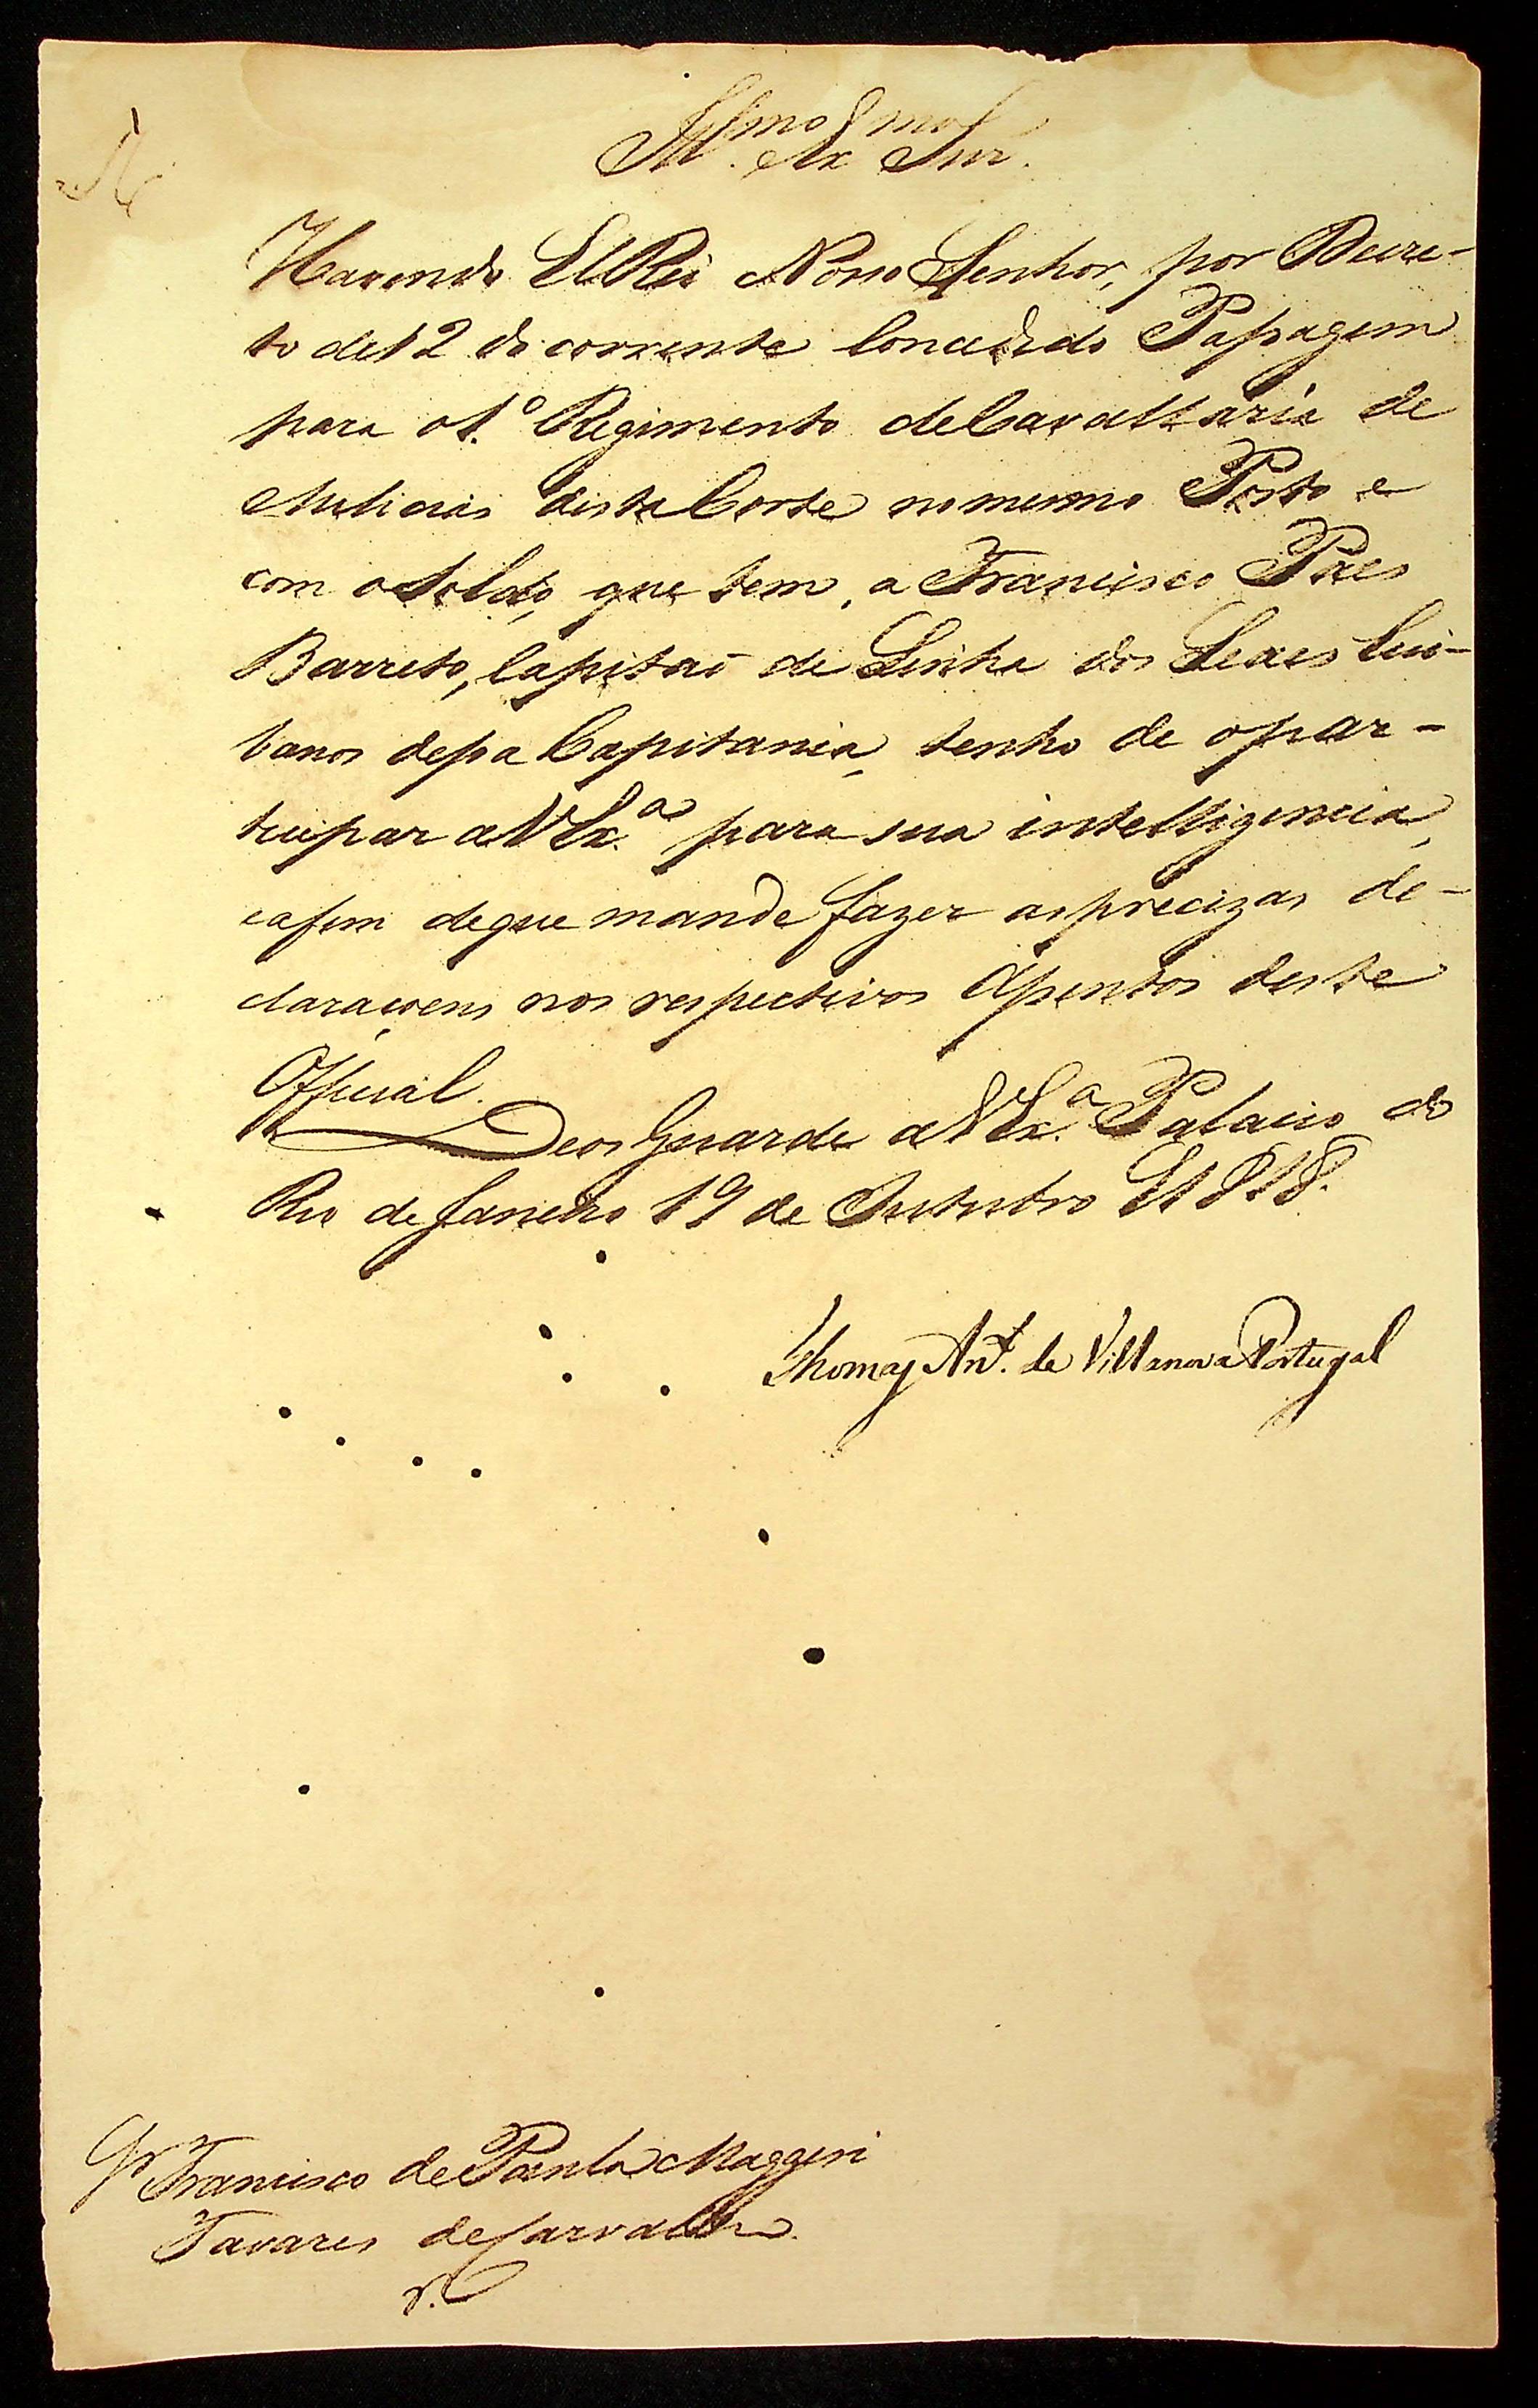 Ill.mo Ex.mo Snr.
Havendo ElRei Nosso Senhor, por Decre-
to de 12 do corrente Concedido Passagem
para o 1.º Regimento de Cavallaria de
Milicias desta Corte no mesmo Posto e
com o Soldo, que tem, a Francisco Paes
Barreto, Capitaõ de Linha dos Sexes Cui-
tanos dessa Capitania, tenho de o par-
ticipar a V Ex.ª para sua intelligencia,
e afim de que mande fazer as precizas de-
claraçoens nos respectivos Assentos deste
Official.
Deos Guarde a V Ex.ª Palacio do
Rio de Janeiro 19 de Outubro de 1818.
Thomaz Ant.º de Villanova Portugal
Sr Francisco de Paula Maggesi
Tavares de Carvalho.